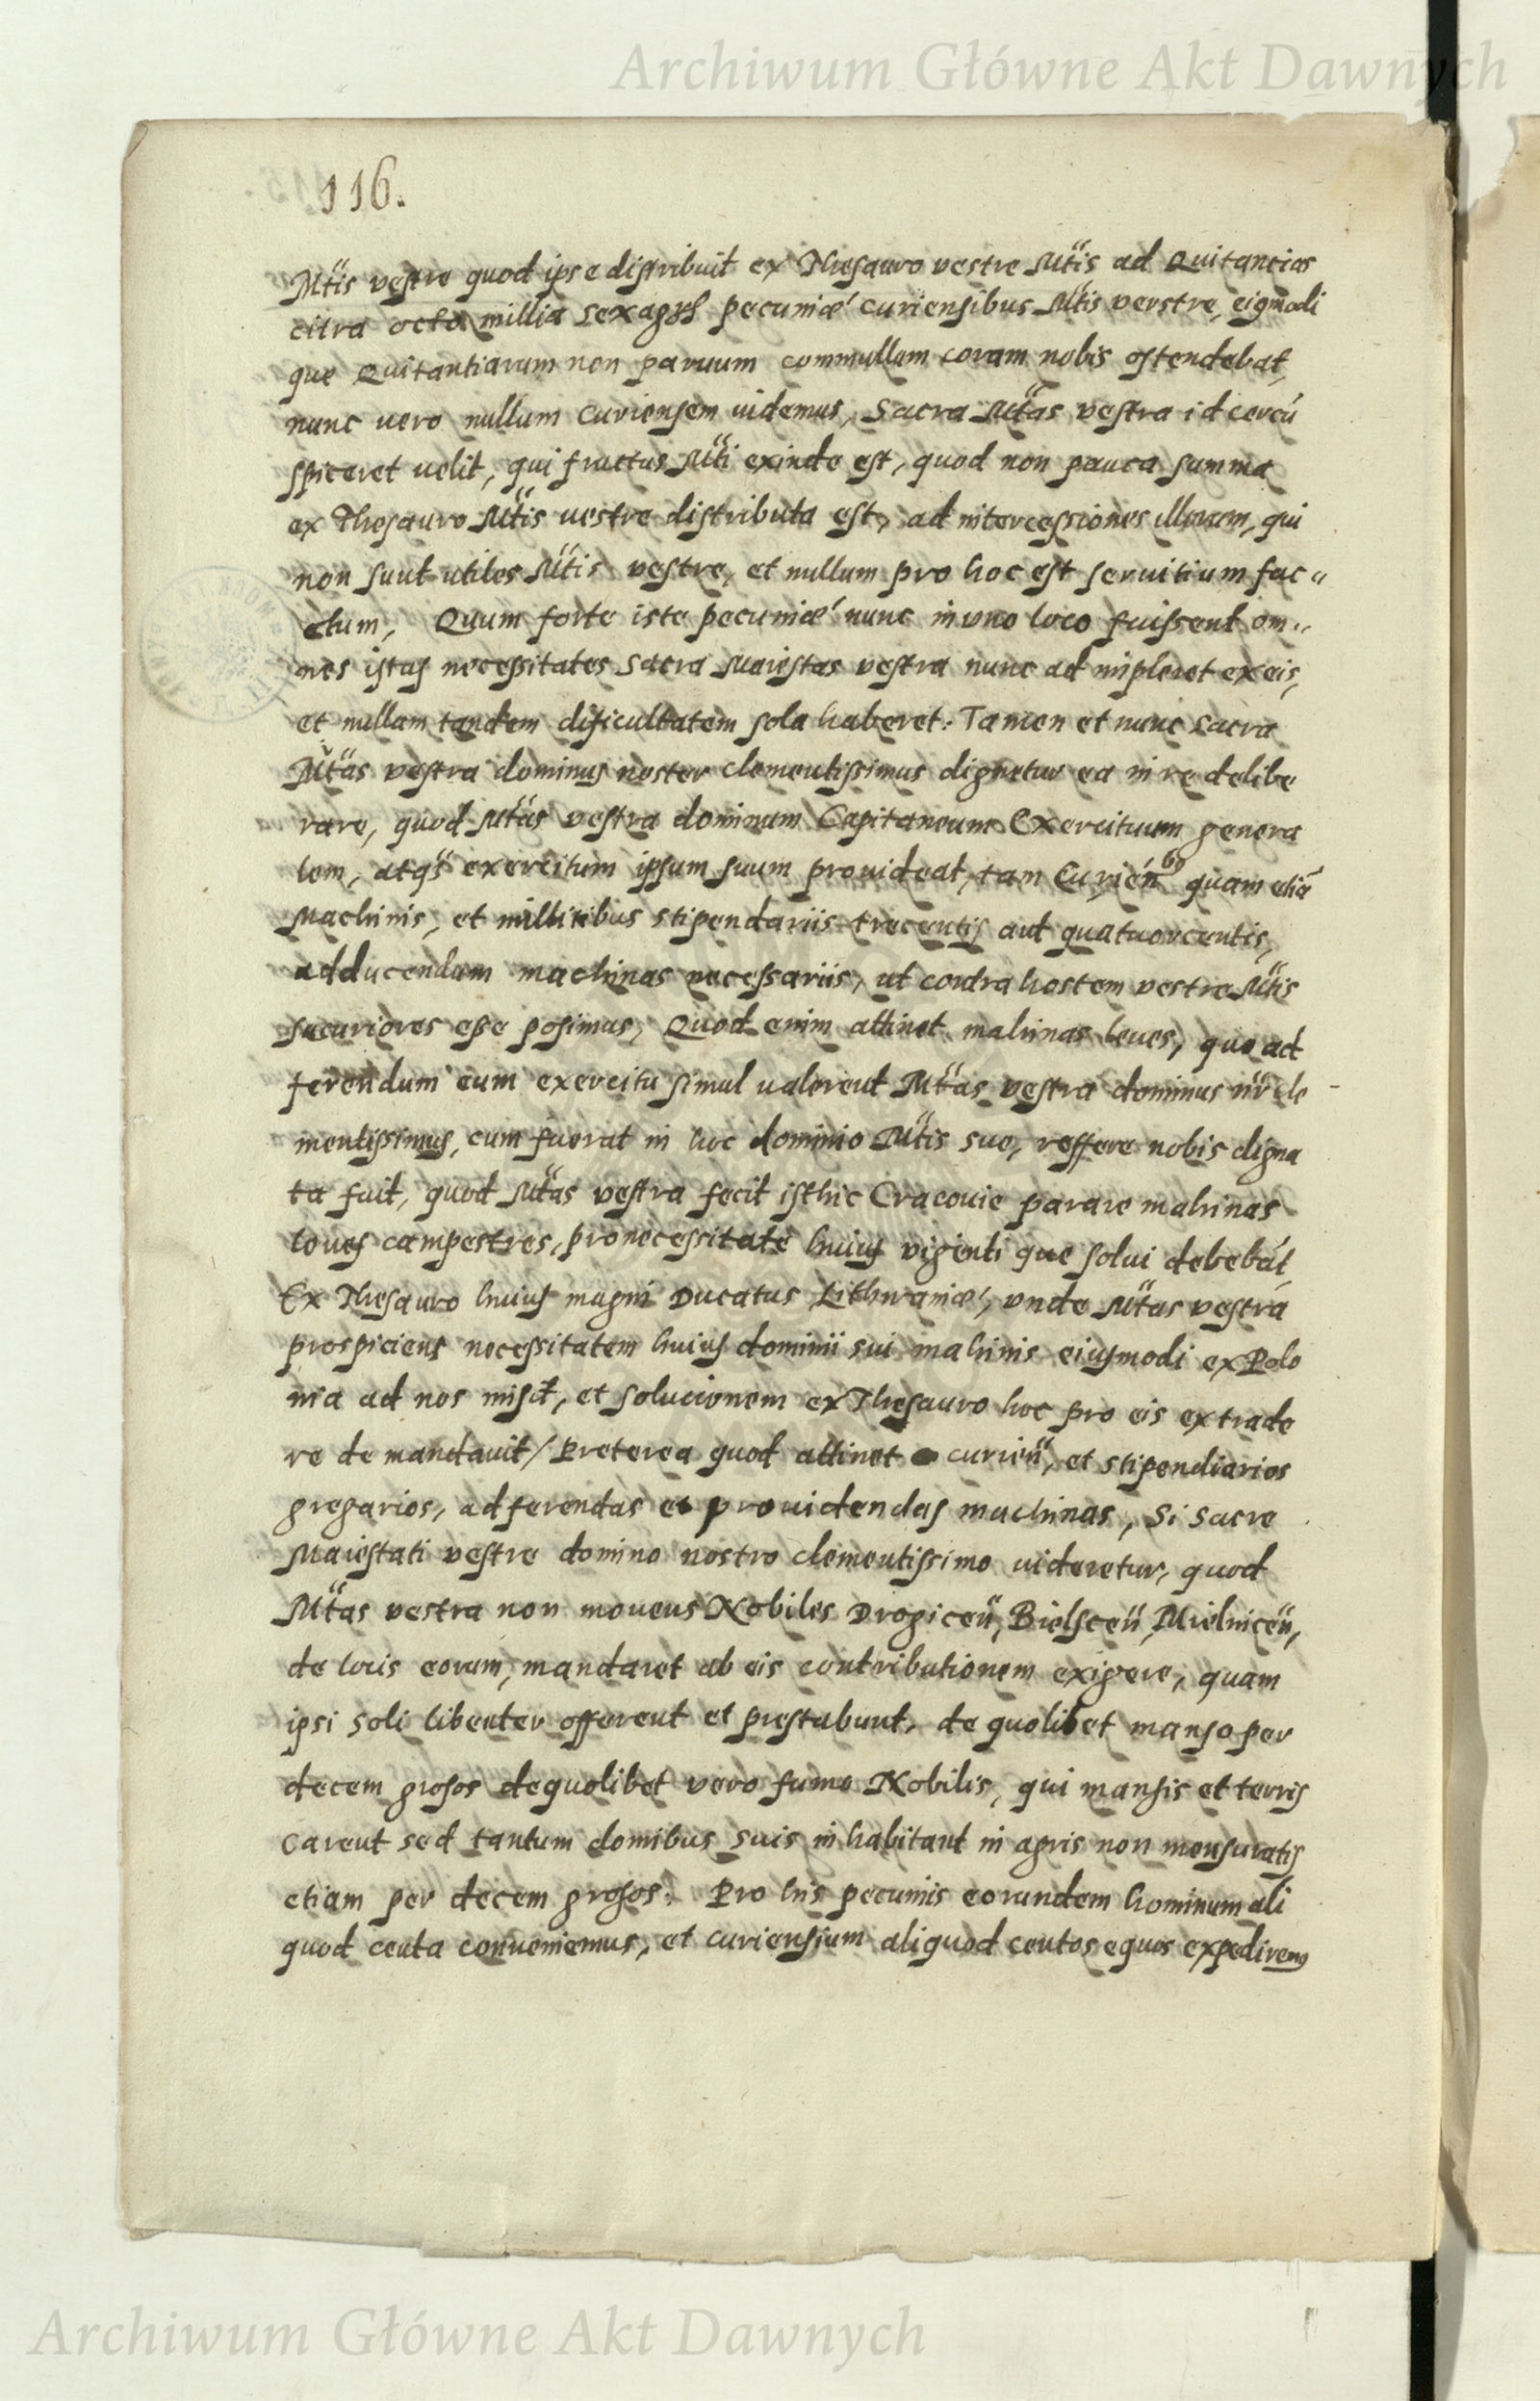 Archiwum Główne Akt Dawnych
116.
Mtis vestre quod ipse distribuit ex Thesauro vestre Mtis ad Quitancias
citra octo millia sexagen pecuniæ curiensibus Mtis verstre, eigmodi
que Quitantiarum non paruum commullum coram nobis ostendebat,
nunc vero nullum curiensem uidemus, Sacra Mtas vestra id cercu
spiceret uelit, qui fructus Mti exinde est, quod non pauca summa
ex Thesauro Mtis uestre distributa est, ad intercessiones illorum, qui
non sunt utiles Mtis vestre, et nullum pro hoc est seruitium fac„
ctum, Quum forte iste pecuniæ nunc in vno loco fuissent om„
nes istas necessitates Sacra Maiestas vestra nunc ad impleret ex eis,
et nullam tandem dificultatem sola haberet: Tamen et nunc Sacra
Mtas vestra dominus noster clementissimus dignetur ea in re delibe
rare, quod Mtas vestra dominum Capitaneum Exercituum genera
lem, atqs exercitum ipsum suum prouideat, tam Curien bs quam etiã
Machinis, et millitibus stipendariis trecentis aut quatuorcentis,
adducendam machinas necessariis, ut contra hostem vestre Mtis
securiores esse posimus, Quod enim attinet mahinas leues, que ad
ferendum eum exercitu simul ualerent Mtas vestra dominus nr cle
mentissimus, cum fuerat in hoc dominio Mtis sue, reffere nobis digna
ta fuit, quod Mtas vestra fecit isthic Cracouie parare mahinas
leues campestres, pro necessitate huius viginti que solui debebãt,
Ex Thesauro huius magni Ducatus Lithuaniæ, vnde Mtas vestra
prospiciens necessitatem huius dominii sui mahinis eiusmodi ex Polo
nia ad nos misit, et solucionem ex Thesauro hoc pro eis extrade
re de mandauit/ Preterea quod attinet curien, et stipendiarios
gregarios, ad ferendas et prouidendas machinas, Si Sacre
Maiestati vestre domino nostro clementissimo uideretur, quod
Mtas vestra non mouens Nobiles Drogicen, Bielscen, Mielnicen,
de locis eorum, mandaret ab eis contributionem exigere, quam
ipsi soli libenter offerent et prestabunt, de quolibet manso per
decem grosos de quolibet vero fumo Nobilis, qui mansis et terris
carent sed tantum domibus suis inhabitant in agris non mensuratis
etiam per decem grosos: Pro his pecuniis eorundem hominum ali
quod centa conueniemus, et curiensium aliquod centos equos expediremus
Archiwum Główne Akt Dawnych